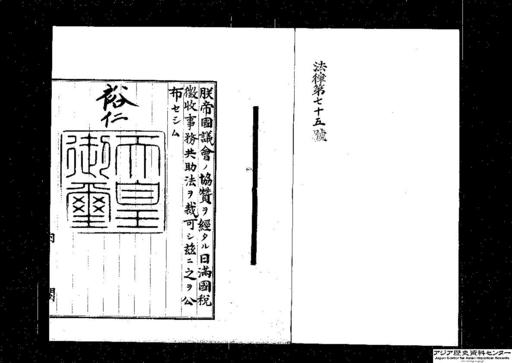 法律第七十五號
朕帝國議會ノ協贊ヲ經タル日滿國稅
徵收事務共助法ヲ裁可シ茲ニ之ヲ公
布セシム
裕仁
天皇
御璽
內閣
アジア歴史資料センター
Japan Center for Asian Historical Records